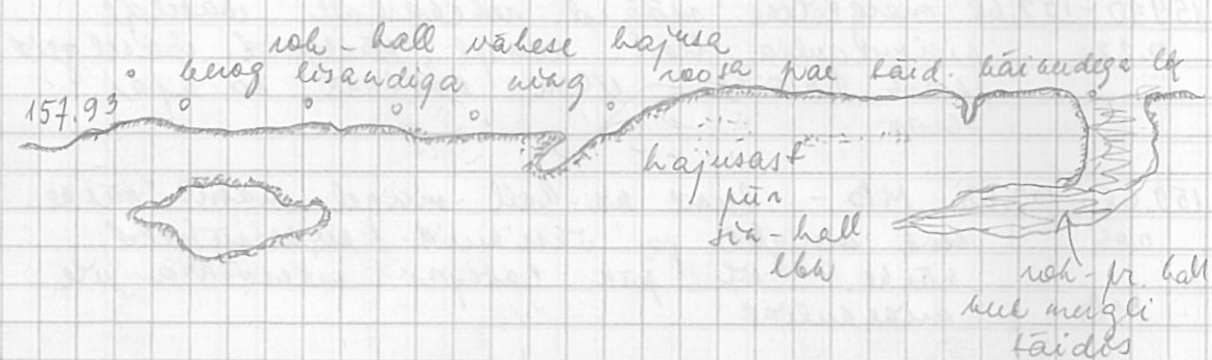 roh-hall vähese hajusa
berog lisandiga ning roosa pae täid. käikudega lbk
157.93
hajusast
piir
sin-hall
lbk
roh-pr. hall
mergli
täidis